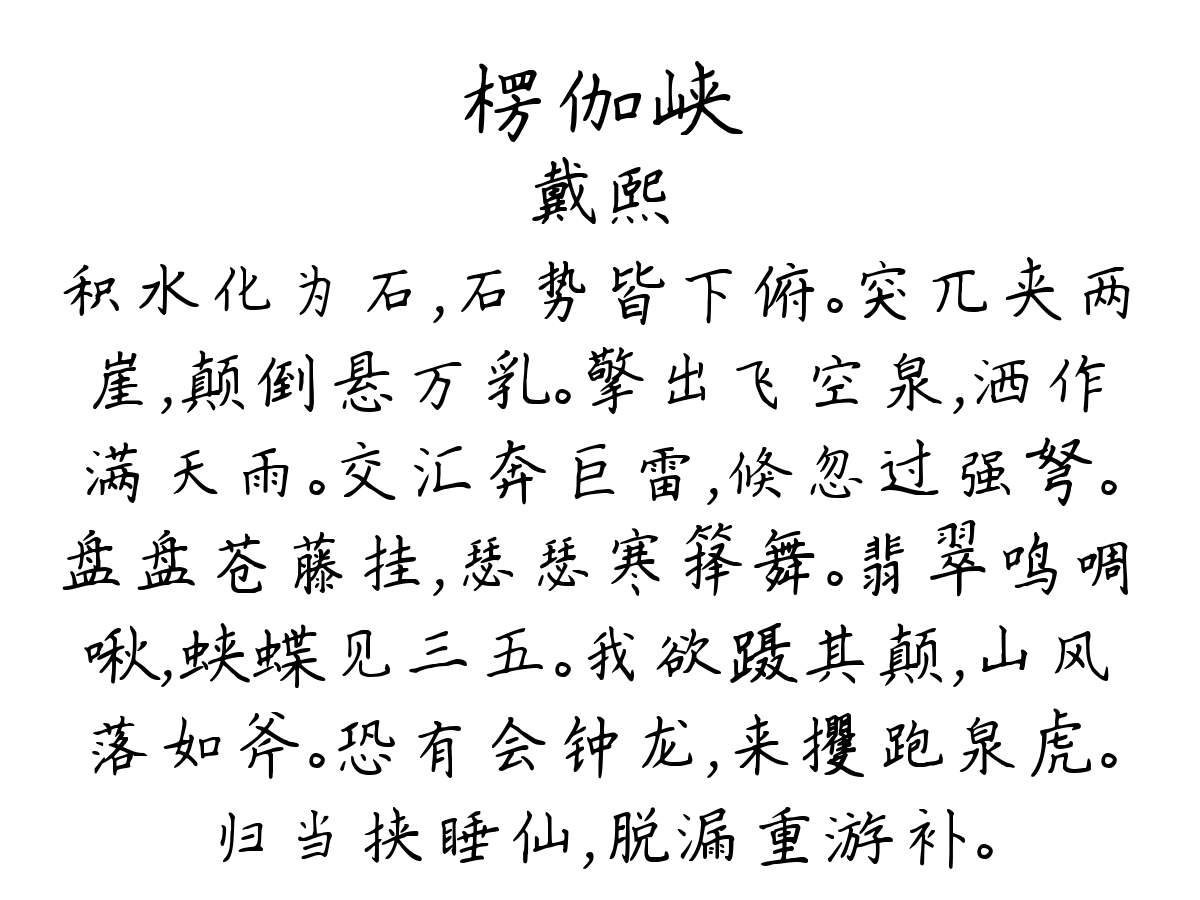 楞伽峡
戴熙
积水化为石,石势皆下俯。突兀夹两
崖,颠倒悬万乳。擎出飞空泉,洒作
满天雨。交汇奔巨雷,倏忽过强弩。
盘盘苍藤挂,瑟瑟寒箨舞。翡翠鸣啁
啾,蛱蝶见三五。我欲蹑其颠,山风
落如斧。恐有会钟龙,来攫跑泉虎。
归当挟睡仙,脱漏重游补。